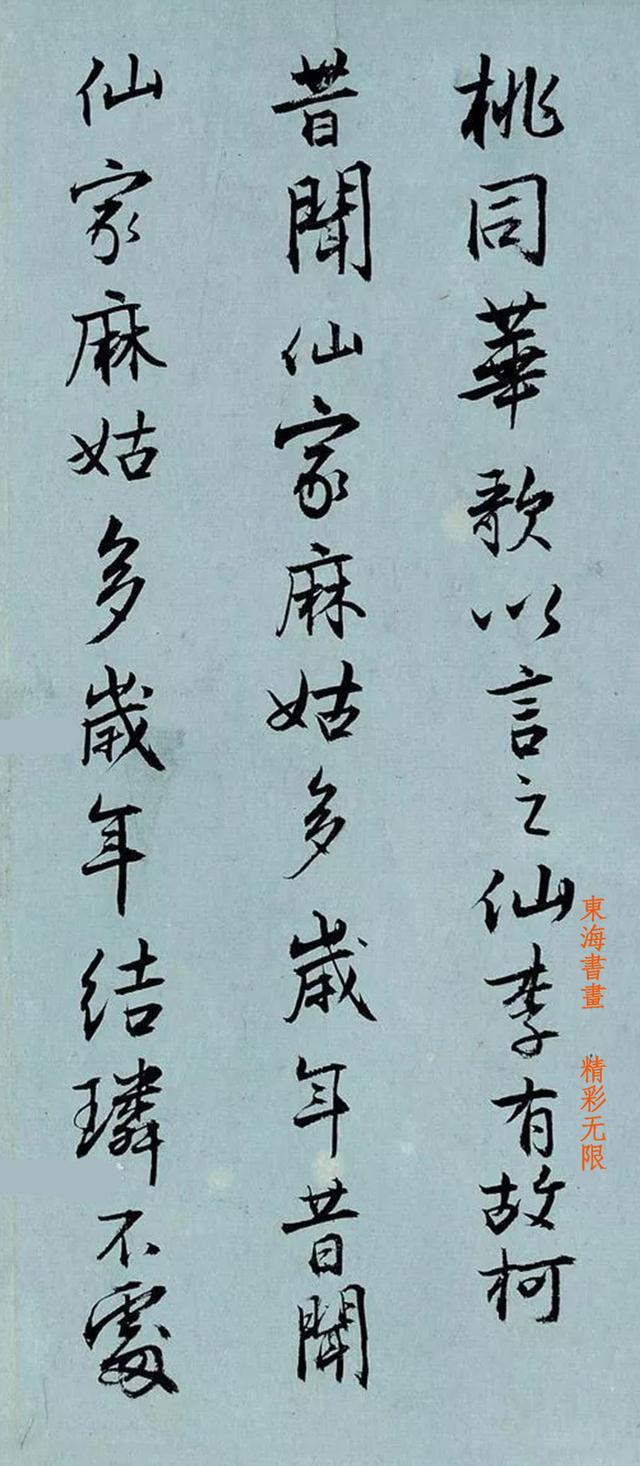 桃同華歌以言之仙李有故柯
昔聞仙家麻姑多歲年昔聞
仙家麻姑多歲年結璘不處
東海書畫 精彩无限